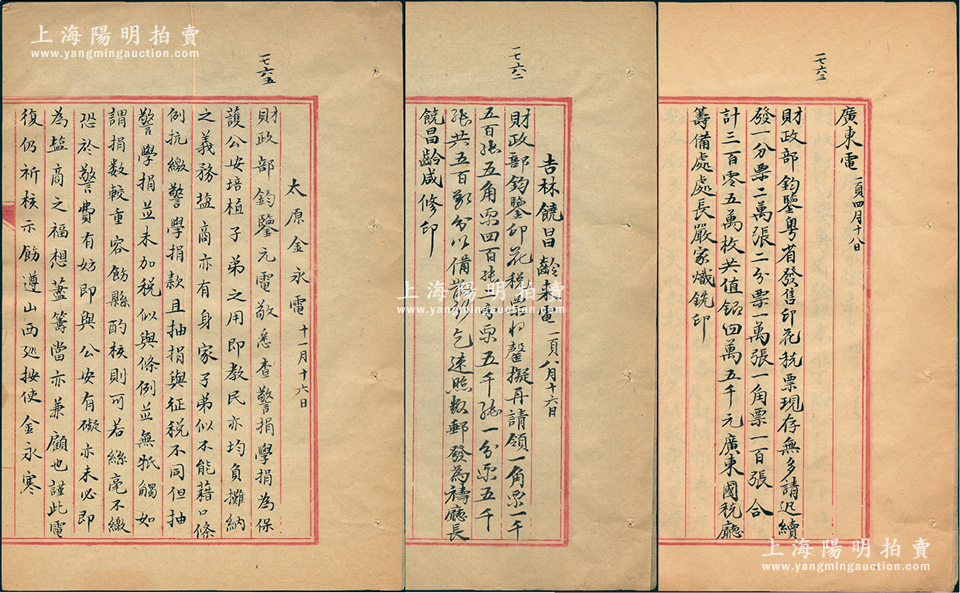 上海陽明拍賣
www.yangmingauction.com
一七六三
廣東電 一頁 四月十八日
財政部鈞鑒粵省發售印花稅票現存無多請迅續
發一分票二萬張二分票一萬張一角票一百張合
計三百零五萬枚共值銀四萬五千元廣東國稅廳
籌備處處長嚴家熾銑印
上海陽明拍賣
www.yangmingauction.com
一七六二
吉林饒昌齡來電 一頁 八月十六日
財政部鈞鑒印花稅票將罄擬再請領一角票一千
五百張五角票四百張二分票五千張一分票五千
張共五百萬分以備需用乞速照數郵發為禱廳長
饒昌齡咸修印
上海陽明拍賣
www.yangmingauction.com
一七六五
太原金永電 十一月十六日
財政部鈞鑒元電敬悉查警捐學捐為保
護公安培植子弟之用即教民亦均負攤納
之義務鹽商亦有身家子弟似不能藉口條
例抗繳警學捐款且抽捐與征稅不同但抽
警學捐並未加稅似與條例並無牴觸如
謂捐數較重容飭縣酌核則可若絲毫不繳
恐於警費有妨即與公安有礙亦未必即
為鹽商之福想藎籌當亦兼顧也謹此電
復仍祈核示飭遵山西巡按使金永寒